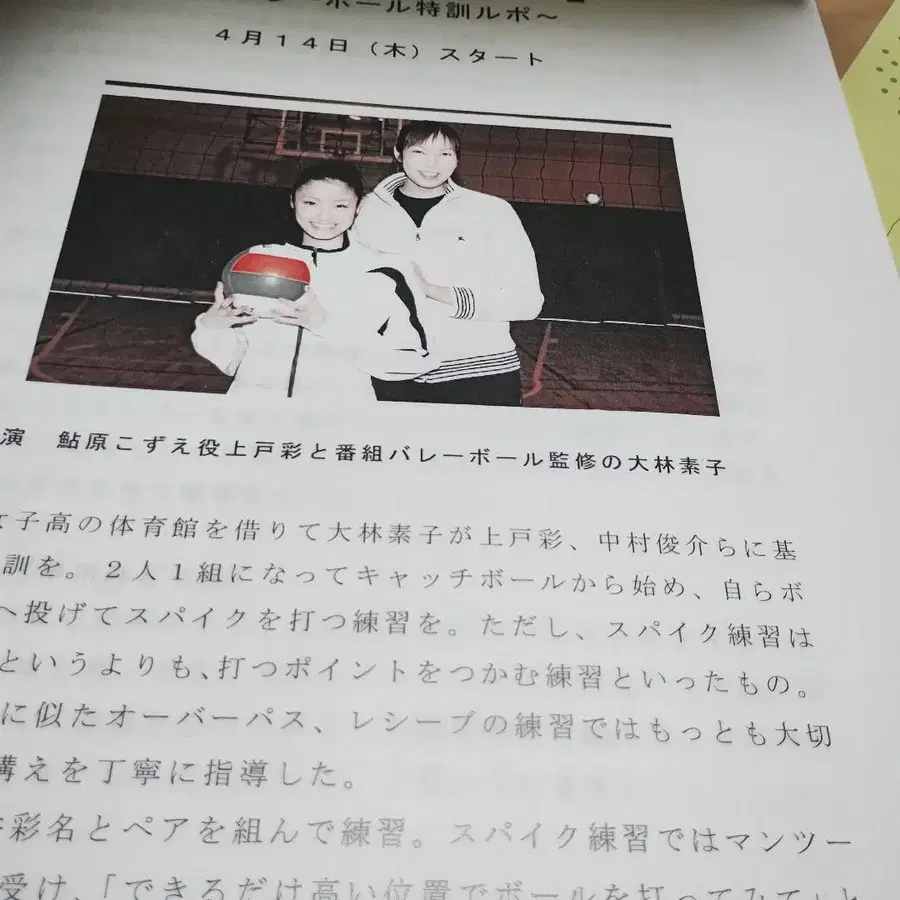 ーボール特訓ルポ~
4月14日(木)スタート
演 鮎原こずえ役上戸彩と番組バレーボール監修の大林素子
女子高の体育館を借りて大林素子が上戸彩、中村俊介らに基
訓を。2人1組になってキャッチボールから始め、自らボ
へ投げてスパイクを打つ練習を。ただし、スパイク練習は
というよりも、打つポイントをつかむ練習といったもの。
に似たオーバーパス、レシーブの練習ではもっとも大切
構えを丁寧に指導した。
彩名とペアを組んで練習。スパイク練習ではマンツー
受け、「できるだけ高い位置でボールを打ってみて」と